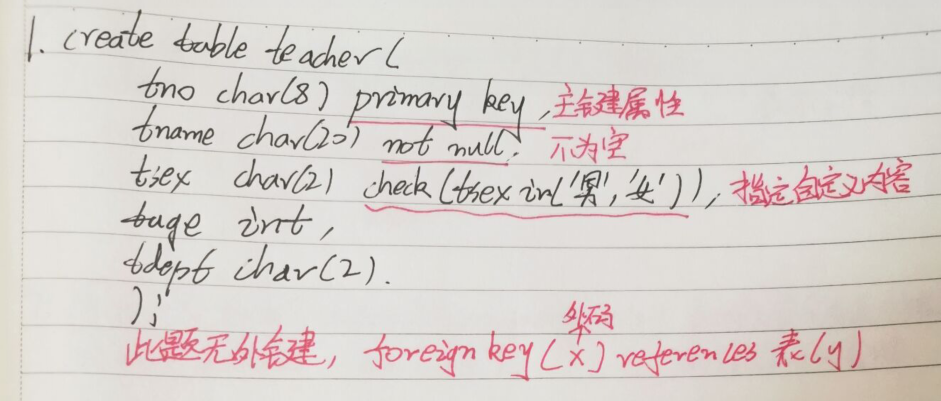 1. create table teacher(
tno char(8) primary key, 主键属性
tname char(20) not null, 不为空
tsex char(2) check(tsex in('男','女')), 指定自定义内容
tage int,
tdept char(2).
);
外码
此题无外键, foreign key(x) references 表(y)